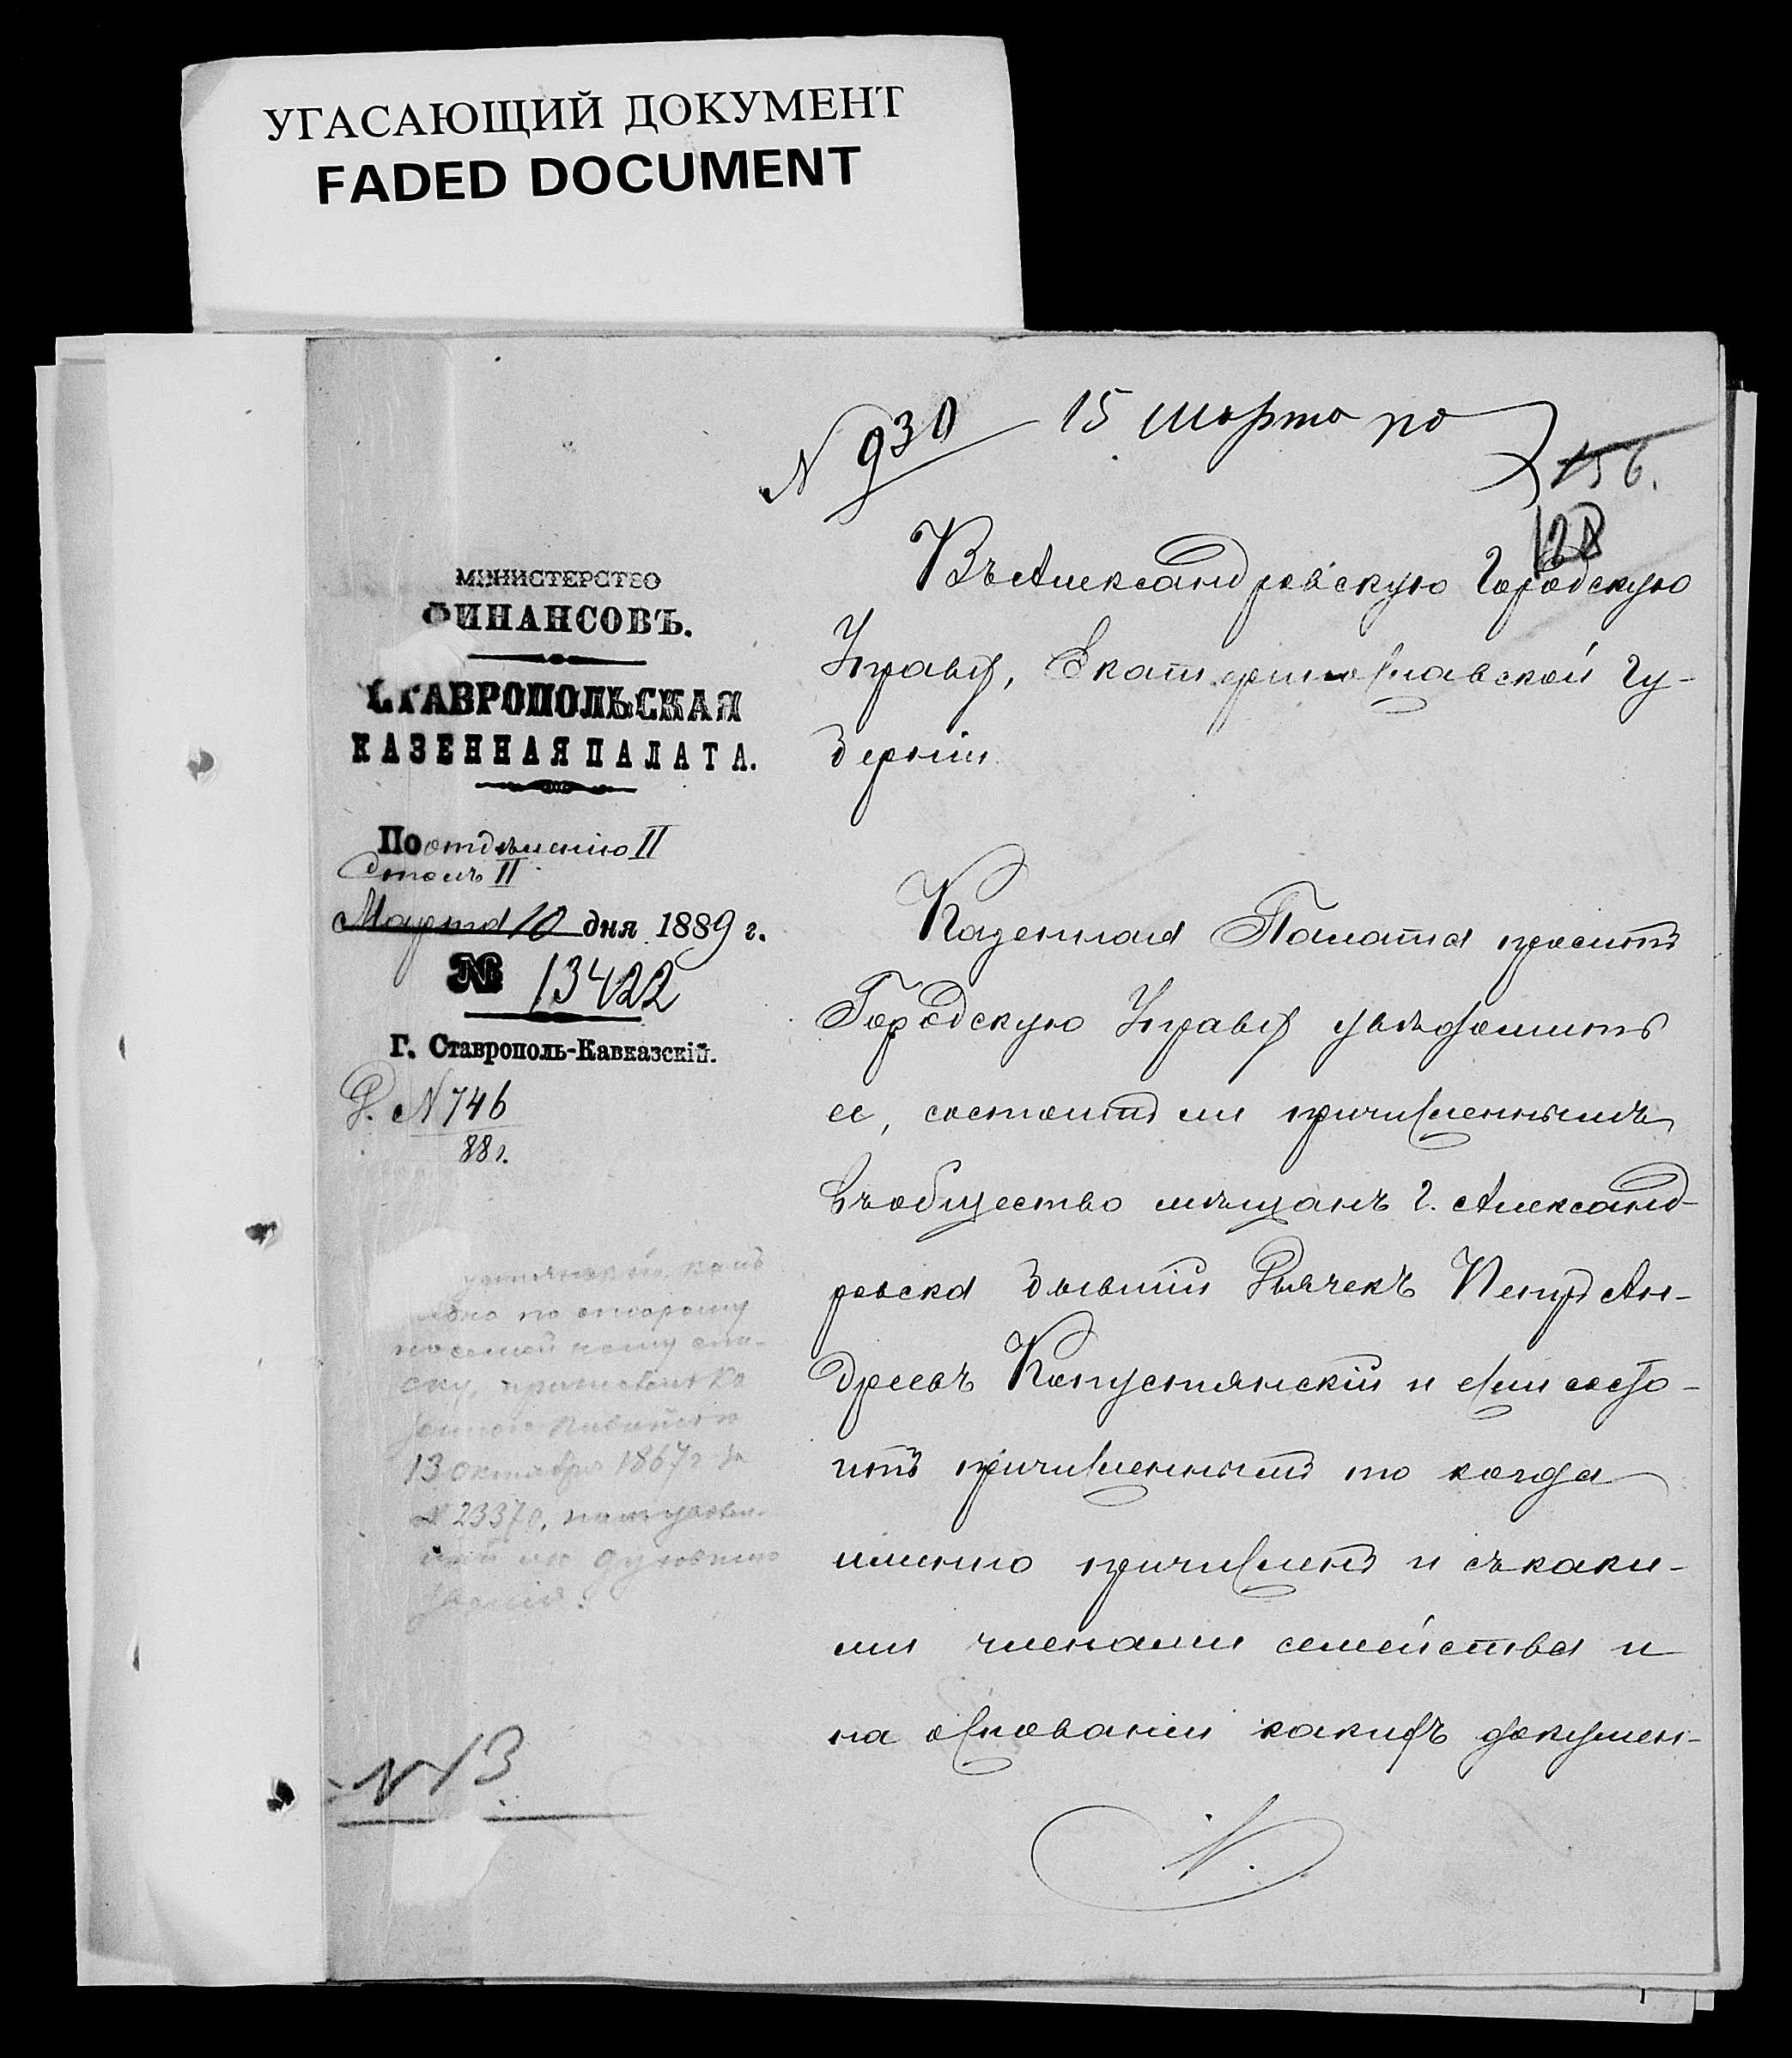 УГАСАЮЩИЙ ДОКУМЕНТ
FADED DOCUMENT
N 930 15 марта
156.
128
МИНИСТЕРСТВО
ФИНАНСОВЪ.
СТАВРОПОЛЬСКАЯ
КАЗЕННАЯ ПАЛАТА.
По отдѣленію II
Столъ II
Марта 10 дня 1889 г.
№ 13422
Г. Ставрополь-Кавказскій.
Р. N 746
88 г.
по второму
13 октября 1867 г за
N 23370,
N 13
Въ Александровскую Городскую
Управу, Екатеринославской гу-
берніи
Казенная Палата проситъ
Городскую Управу увѣдомить
ее, состоитъ ли причисленнымъ
въ общество мѣщанъ г. Александ-
ровска бывшій Петръ Ан-
дреевъ Капустянскій и если состо-
итъ причисленнымъ то когда
именно причисленъ и съ каки-
ми членами семейства и
на основаніи какихъ докумен-